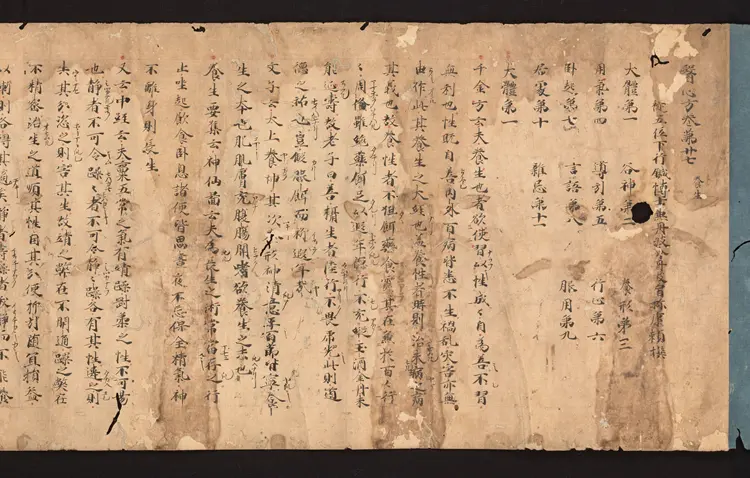 醫心方卷第廿七 養生
從五位下行鍼博士兼丹波介宿禰康賴撰
大體第一 谷神第二 養形第三
用氣第四 導引第五 行止第六
臥起第七 言語第八 服用第九
居處第十 雜忌第十一
大體第一
千金方云夫養生也者欲使習以性成々自為善不習
無利也性既自善內外百病皆悉不生禍亂灾害亦無
由作此其養生之大經也盖養性者時則治未病之病
其義也故養性者不但餌藥飡霞其在兼於百々行
々周備雖絕藥餌足以遐年德行不充縱玉酒金丹未
能延壽故老子曰善攝生者陸行不畏虎兕此則道
德之祐也豈假服餌而祈遐年哉
文子云太上養神其次養形神清意平百節皆寧養
生之本也肥肌膚充腹腸開嗜欲養生之末也
養生要集云神仙啚云夫為長生之術常當存之行
止坐起飲食臥息諸便皆思晝夜不忘保全精氣神
不離身則長生
又云中經云夫禀五常之氣有靜躁對柔之性不可易
也靜者不可令躁々者不可令靜々躁各有其性違之則
失其分恣之則害其生故靜之弊在不開通躁之弊在
不精密治生之道順其性因其分使抑引隨宜損益
以漸則各得其適矣靜者壽躁者夭靜而不能養